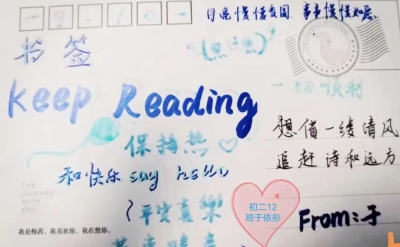 月亮慢慢变圆 事事慢慢如愿
书签
一切顺利
Keep Reading
保持热
想借一缕清风
追赶诗和远方
和快乐 say hello
THE
JOURNEY
WITH
初二12
班于依彤
平安喜樂
From:于
我是梅茜，我喜欢你，我在想你。